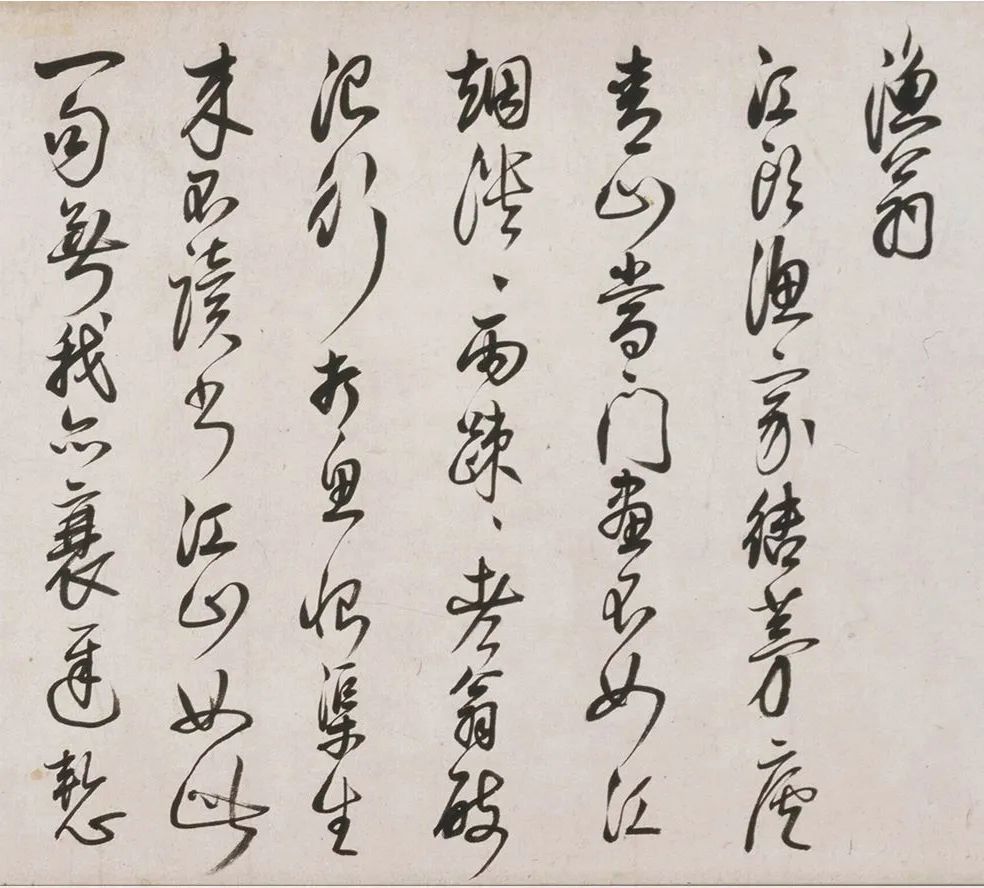 漁翁
江頭漁家結茅廬
青山當門畫不如江
烟淡〻雨疎〻老翁破
浪行打魚恨渠生
來不讀書江山如此
一句無我亦衰遲慙